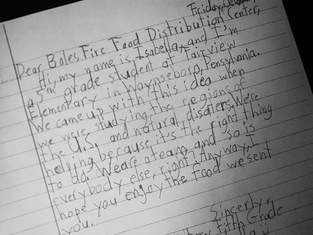 Friday,
Dear Boles Fire Food Distribution Center,
Hi, my name is Isabella, and I'm
a 5th grade student at Fairview
Elementary in Waynesboro, Pennsylvania.
We came up with this idea when
we were studying the regions of
the U.S. and natural disasters. We're
helping because, it's the right thing
to do. We are a team, and so is
everybody else, right? Anyway, I
hope you enjoy the food we sent
you.
Sincerely,
Fifth Grade